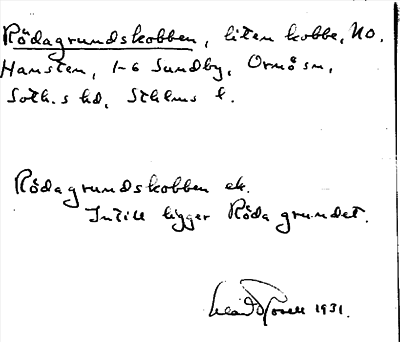 Rödagrundskobben, liten kobbe, NO.
Hamsten, 1-6 Sundby, Ornö sn,
Soth.s hd, Sthlms l.
Rödagrundskobben ek.
Intill ligger Röda grundet.
1931.